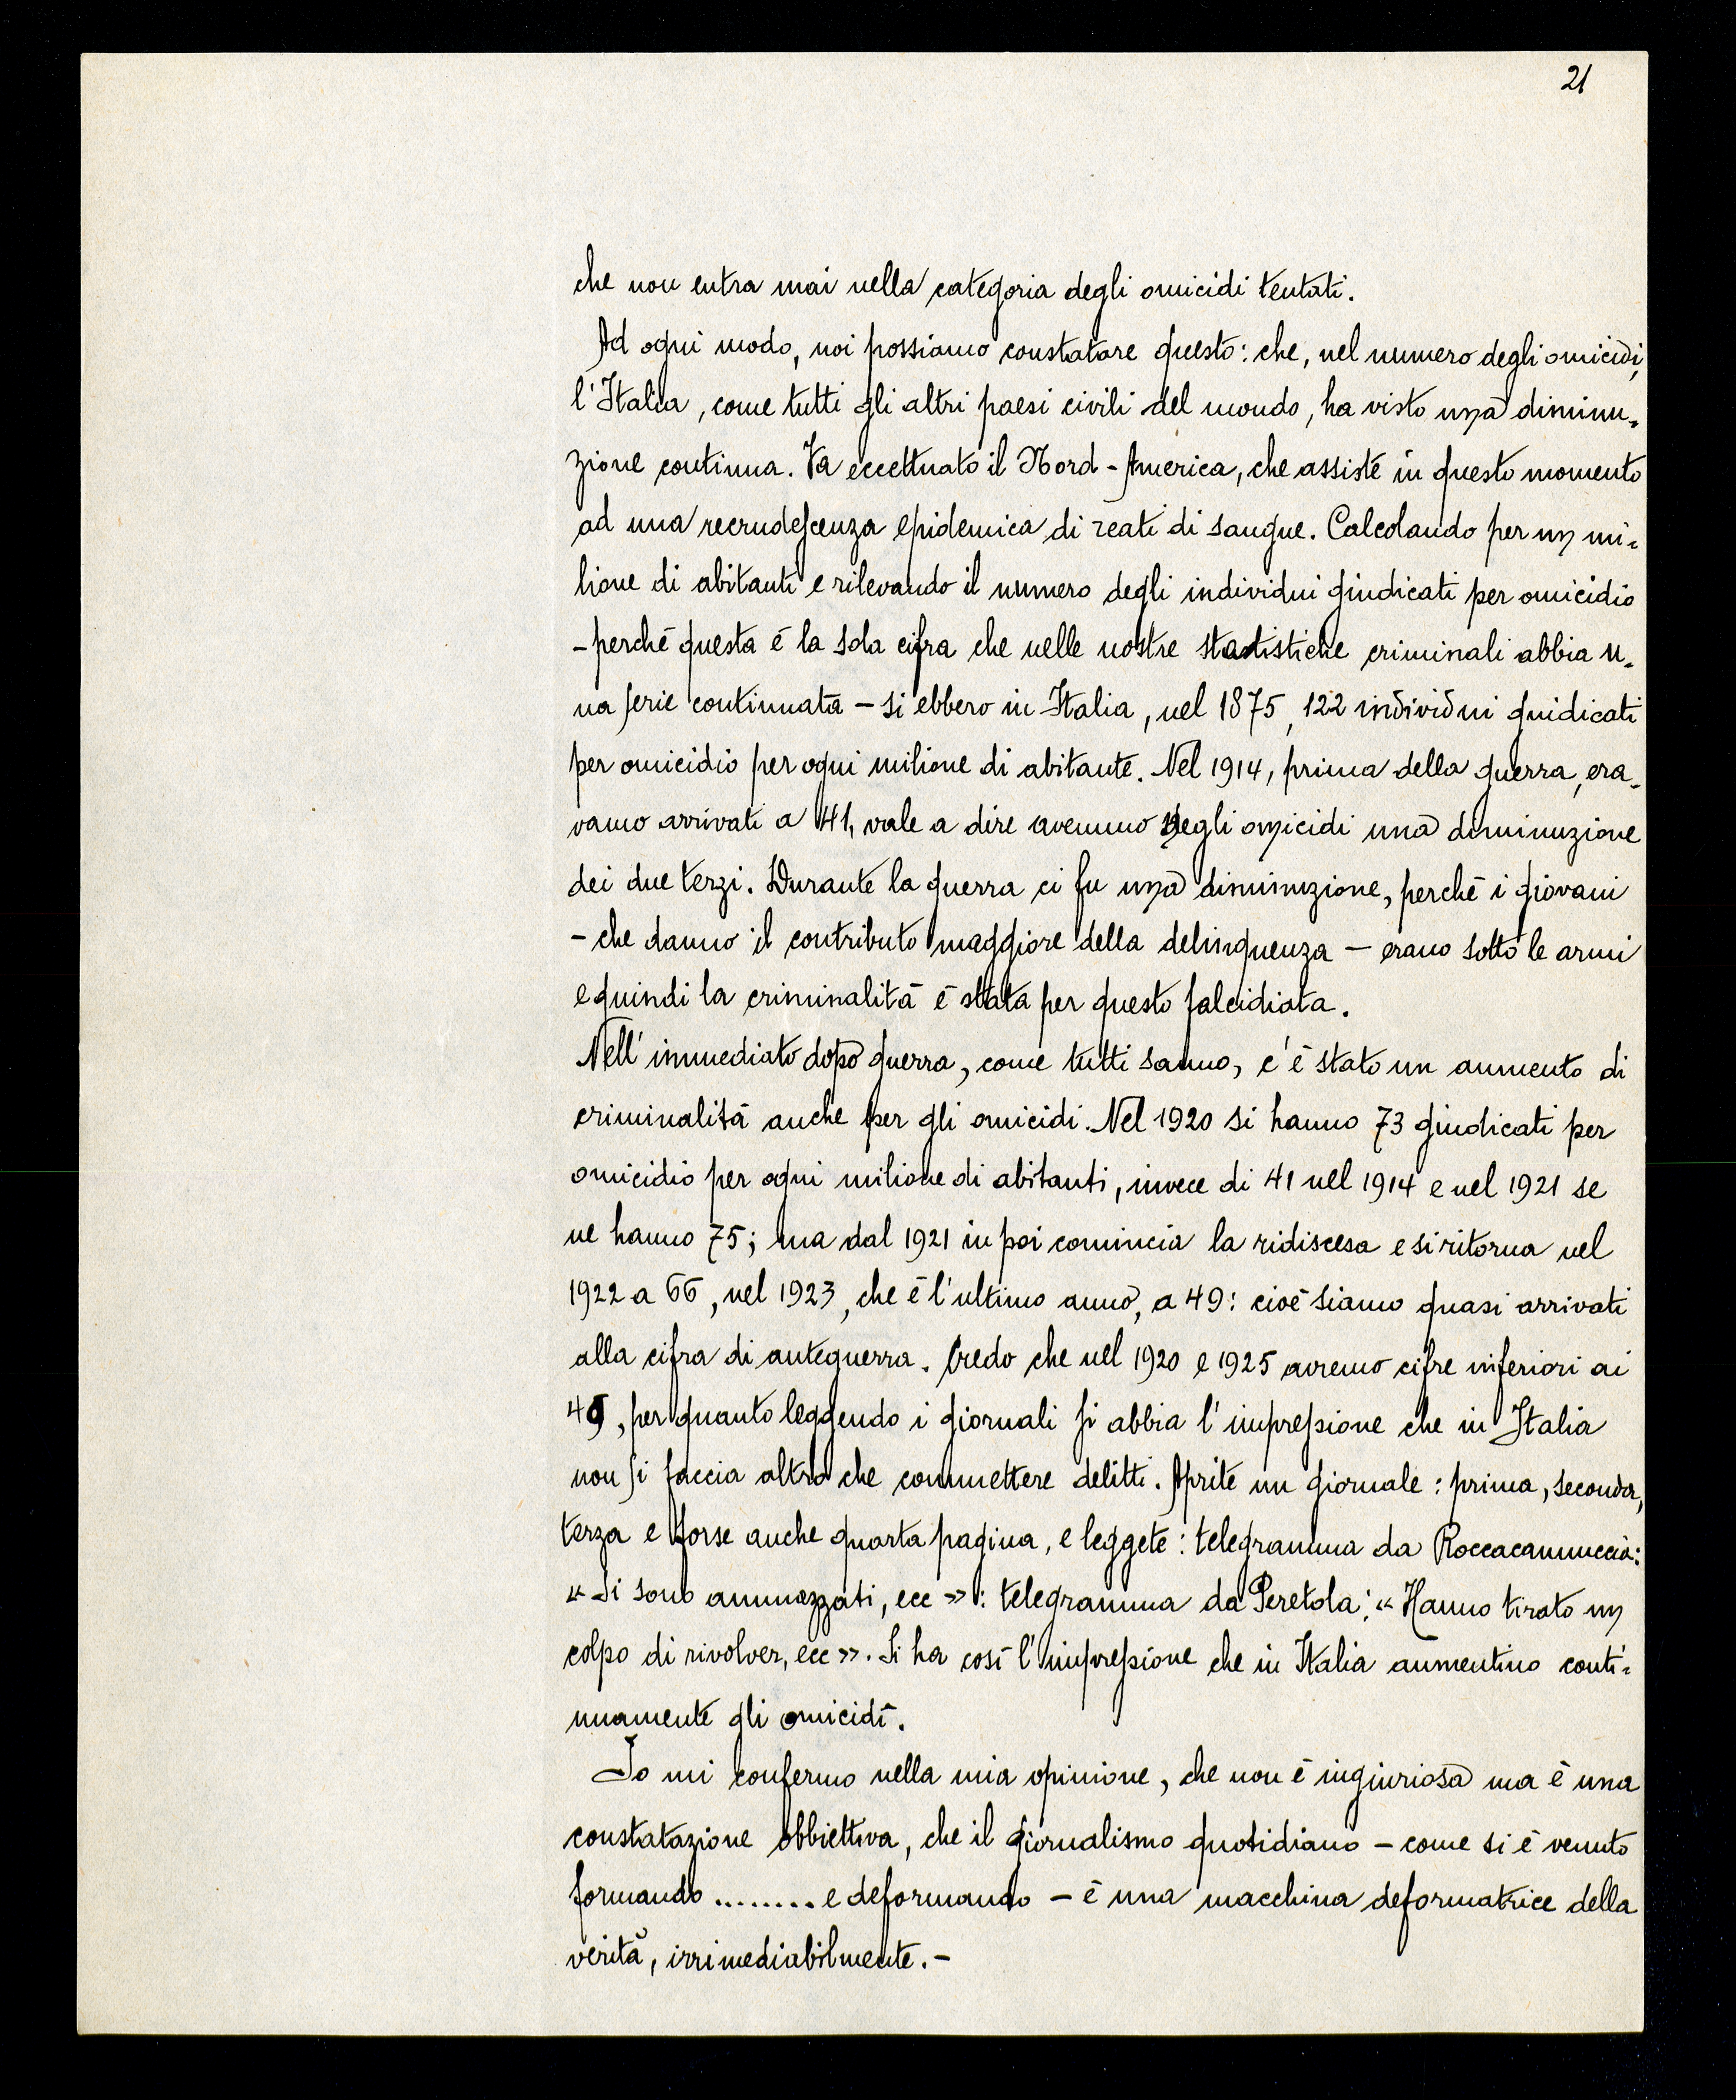 21
che non entra mai nella categoria degli omicidi tentati.
Ad ogni modo, noi possiamo constatare questo: che, nel numero degli omicidi,
l'Italia, come tutti gli altri paesi civili del mondo, ha visto una diminu-
zione continua. Va eccettuato il Nord-America, che assiste in questo momento
ad una recrudescenza epidemica di reati di sangue. Calcolando per un mi-
lione di abitanti e rilevando il numero degli individui giudicati per omicidio
- perchè questa è la sola cifra che nelle nostre statistiche criminali abbia u-
na serie continuata - si ebbero in Italia, nel 1875, 122 individui guidicati
per omicidio per ogni milione di abitante. Nel 1914, prima della guerra, era-
vamo arrivati a 41, vale a dire avemmo negli omicidi una diminuzione
dei due terzi. Durante la guerra ci fu una diminuzione, perchè i giovani
- che danno il contributo maggiore della delinquenza - erano sotto le armi
e quindi la criminalità è stata per questo falcidiata.
Nell'immediato dopo guerra, come tutti sanno, c'è stato un aumento di
criminalità anche per gli omicidi. Nel 1920 si hanno 73 giudicati per
omicidio per ogni milione di abitanti, invece di 41 nel 1914 e nel 1921 se
ne hanno 75; ma dal 1921 in poi comincia la ridiscesa e si ritorna nel
1922 a 66, nel 1923, che è l'ultimo anno, a 49: cioè siamo quasi arrivati
alla cifra di anteguerra. Credo che nel 1920 e 1925 avremo cifre inferiori ai
49, per quanto leggendo i giornali si abbia l'impressione che in Italia
non si faccia altro che commettere delitti. Aprite un giornale: prima, seconda,
terza e forse anche quarta pagina, e leggete: telegramma da Roccacannuccia:
« Si sono ammazzati, ecc »: telegramma da Peretola: « Hanno tirato un
colpo di rivolver, ecc ». Si ha così l'impressione che in Italia aumentino conti-
nuamente gli omicidi.
Io mi confermo nella mia opinione, che non è ingiuriosa ma è una
constatazione obbiettiva, che il giornalismo quotidiano - come si è venuto
formando ........ e deformando - è una macchina deformatrice della
verità, irrimediabilmente. -